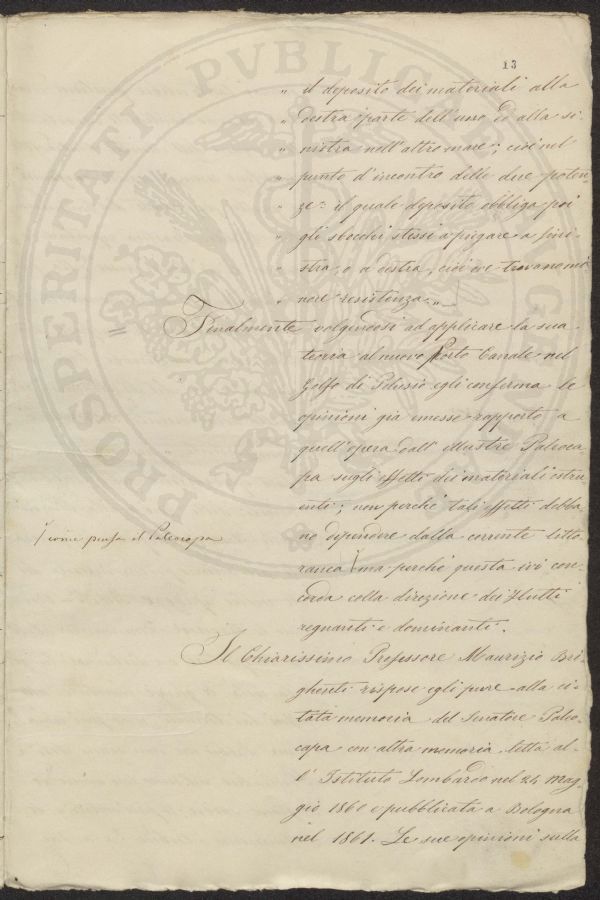 13
„ il deposito dei materiali alla
„ destra parte dell'uno ed alla si-
„ nistra nell'altro mare; cioè nel
„ punto d'incontro delle due poten-
„ ze: il quale deposito obbliga poi
„ gli sbocchi stessi a piegare a sini-
„ stra, o a destra, cioè ove trovano mi-
„ nore resistenza. „
Finalmente volgendosi ad applicare la sua
teoria al nuovo Porto Canale nel
Golfo di Pelusio egli conferma le
opinioni già emesse rapporto a
quell'opera dall'illustre Paleoca-
pa sugli effetti dei materiali ostru-
enti; non perchè tali effetti debba-
no dipendere dalla corrente litto-
ranea ma perchè questa ivi con-
corda colla direzione dei flutti
regnanti e dominanti.
come pensa il Paleocapa
Il Chiarissimo Professore Maurizio Bri-
ghenti rispose egli pure alla ci-
tata memoria del Senatore Paleo-
capa con altra memoria letta al-
l'Istituto Lombardo nel 24 Mag-
gio 1860 e pubblicata a Bologna
nel 1861. Le sue opinioni sulla
PROSPERITATI PVBLICAE